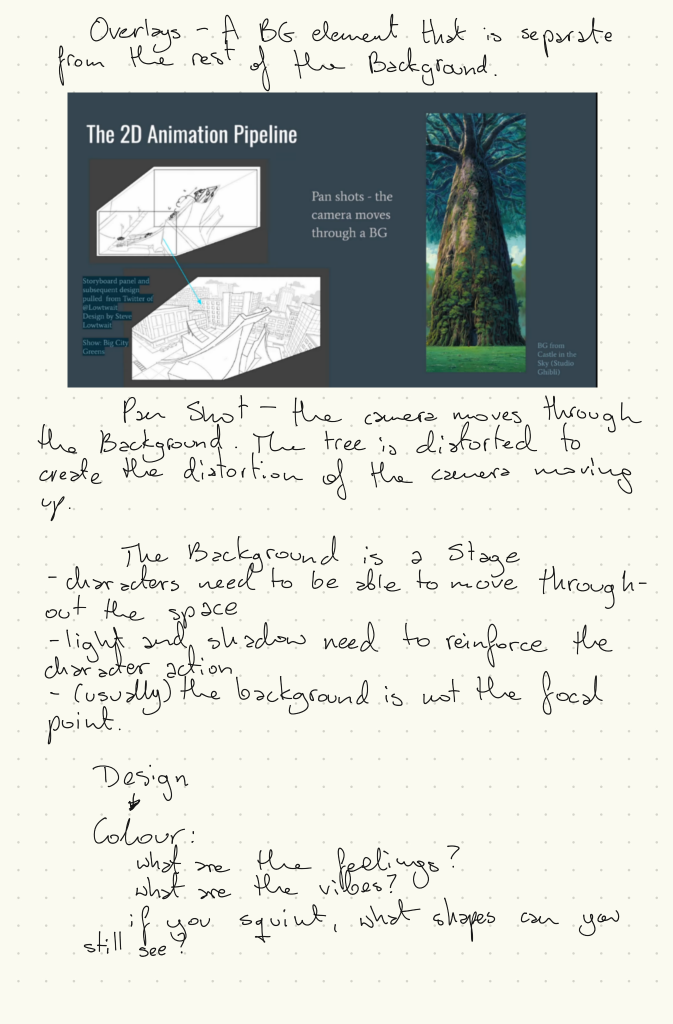 Overlays - A BG element that is separate
from the rest of the Background.
The 2D Animation Pipeline
Pan shots - the
camera moves
through a BG
Storyboard panel and
subsequent design
pulled from Twitter of
@Lowtwait
Design by Steve
Lowtwait
Show: Big City
Greens
BG from
Castle in the
Sky (Studio
Ghibli)
Pan Shot - the camera moves through
the Background. The tree is distorted to
create the distortion of the camera moving
up.
The Background is a Stage
- characters need to be able to move through-
out the space
- light and shadow need to reinforce the
character action
- (usually) the background is not the focal
point.
Design
Colour:
what are the feelings?
what are the vibes?
if you squint, what shapes can you
still see?